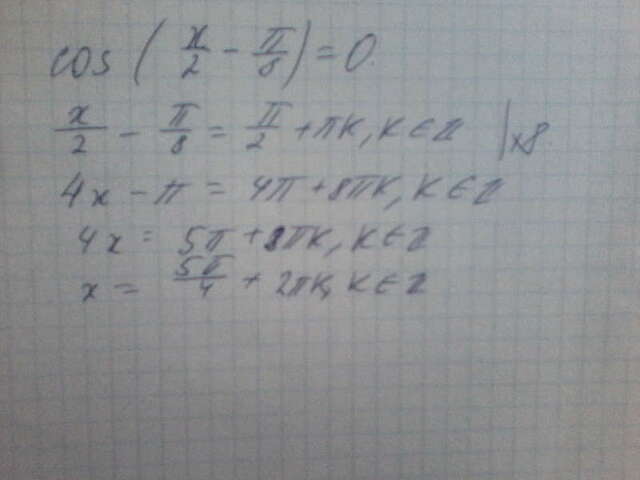 cos(x/2 - π/8) = 0.
x/2 - π/8 = π/2 + πк, к ∈ Z |×8
4x - π = 4π + 8πк, к ∈ Z
4x = 5π + 8πк, к ∈ Z
x = 5π/4 + 2πк, к ∈ Z